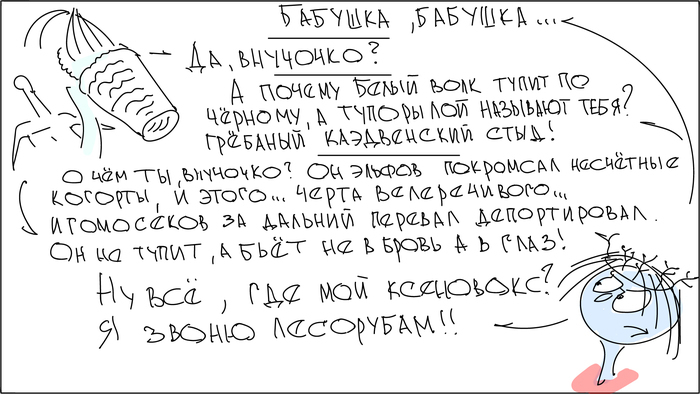 Бабушка, бабушка...
Да, внучочко?
А почему белый волк тупит по
чёрному, а тупорылой называют тебя?
Грёбаный каэдвенский стыд!
О чём ты, внучочко? Он эльфов покромсал несчётные
когорты, и этого... черта велеречивого...
и гомосеков за дальний перевал депортировал.
Он не тупит, а бьёт не в бровь а в глаз!
Ну всё, где мой ксеновокс?
Я звоню лесорубам!!